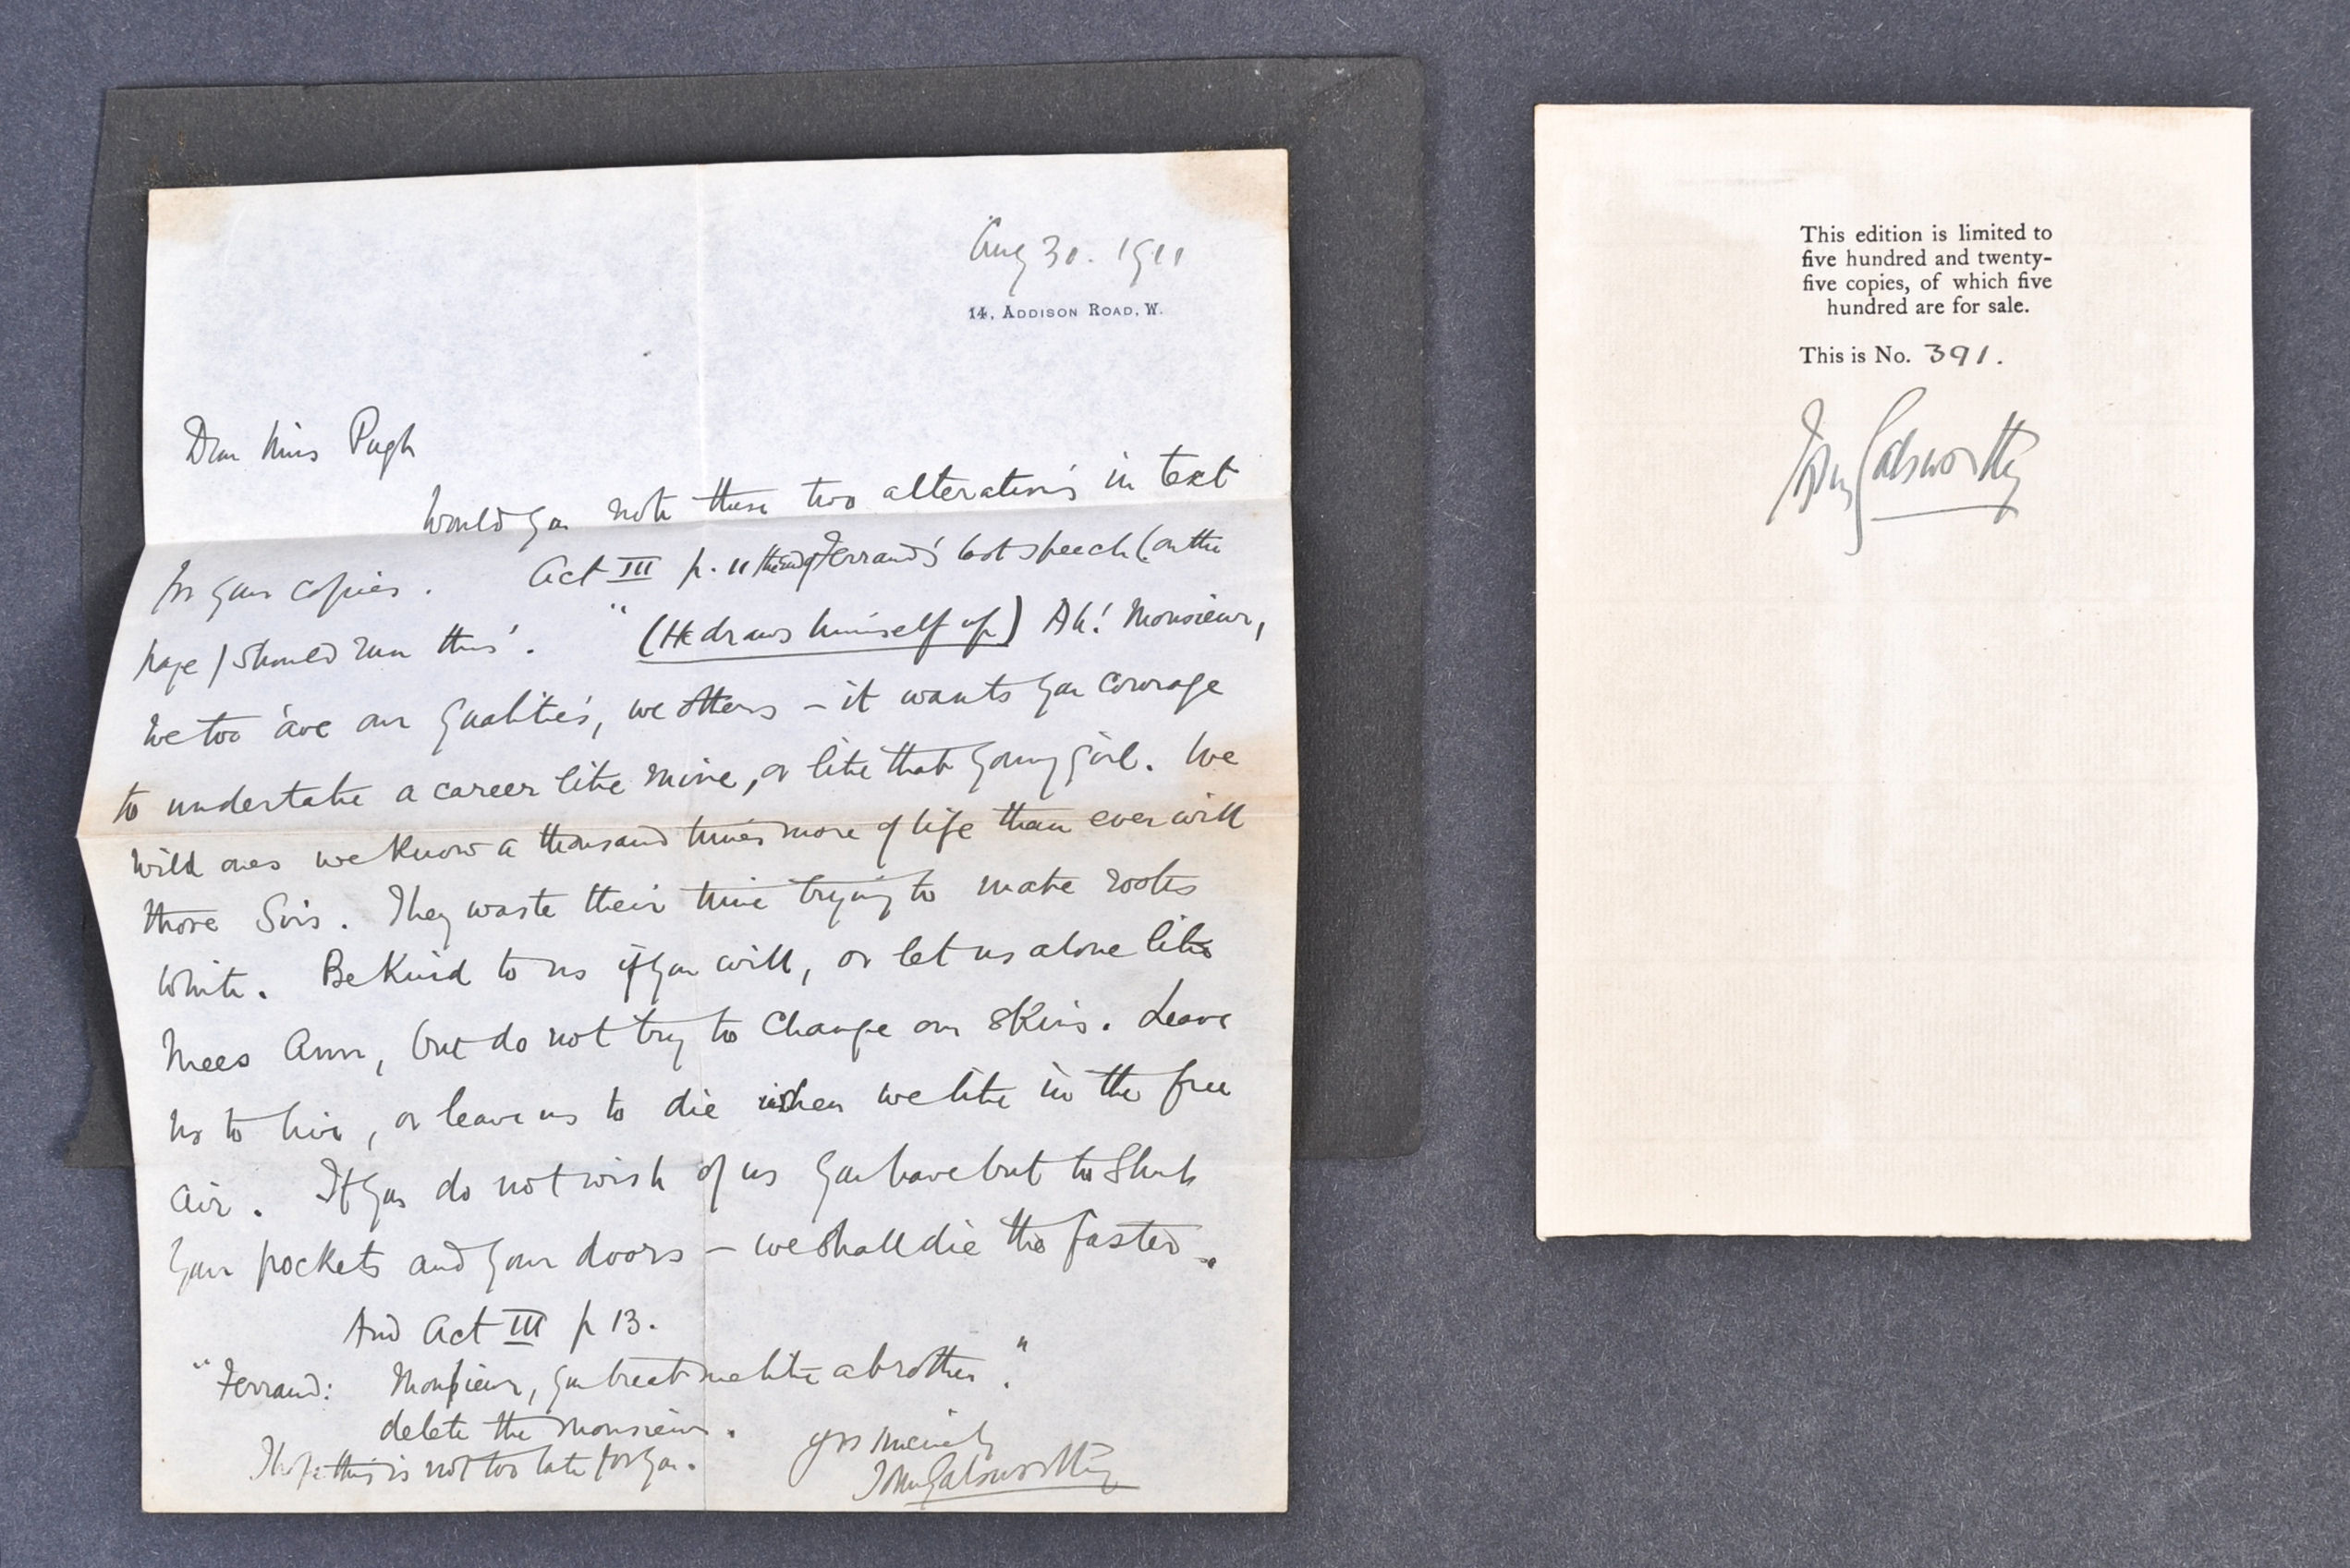 Aug 30. 1911
14, ADDISON ROAD, W.
Dear Miss Pugh
Would you note these two alterations in text
in your copies. Act III p. 11 Ferrand's last speech (on the
page) should run thus. " (He draws himself up) Ah! Monsieur,
we too 'ave our qualities, we others – it wants you courage
to undertake a career like mine, or like that young girl. We
wild ones we know a thousand times more of life than ever will
those Sirs. They waste their time trying to make rooks
white. Be kind to us if you will, or let us alone like
Mees Ann, but do not try to change our skins. Leave
us to live, or leave us to die when we like in the free
air. If you do not wish of us you have but to shut
your pockets and your doors – we shall die the faster.
And Act III p 13.
"Ferrand: Monsieur, you treat me like a brother."
delete the Monsieur.
I hope this is not too late for you.
yrs sincerely
John Galsworthy
This edition is limited to
five hundred and twenty-
five copies, of which five
hundred are for sale.
This is No. 391.
John Galsworthy